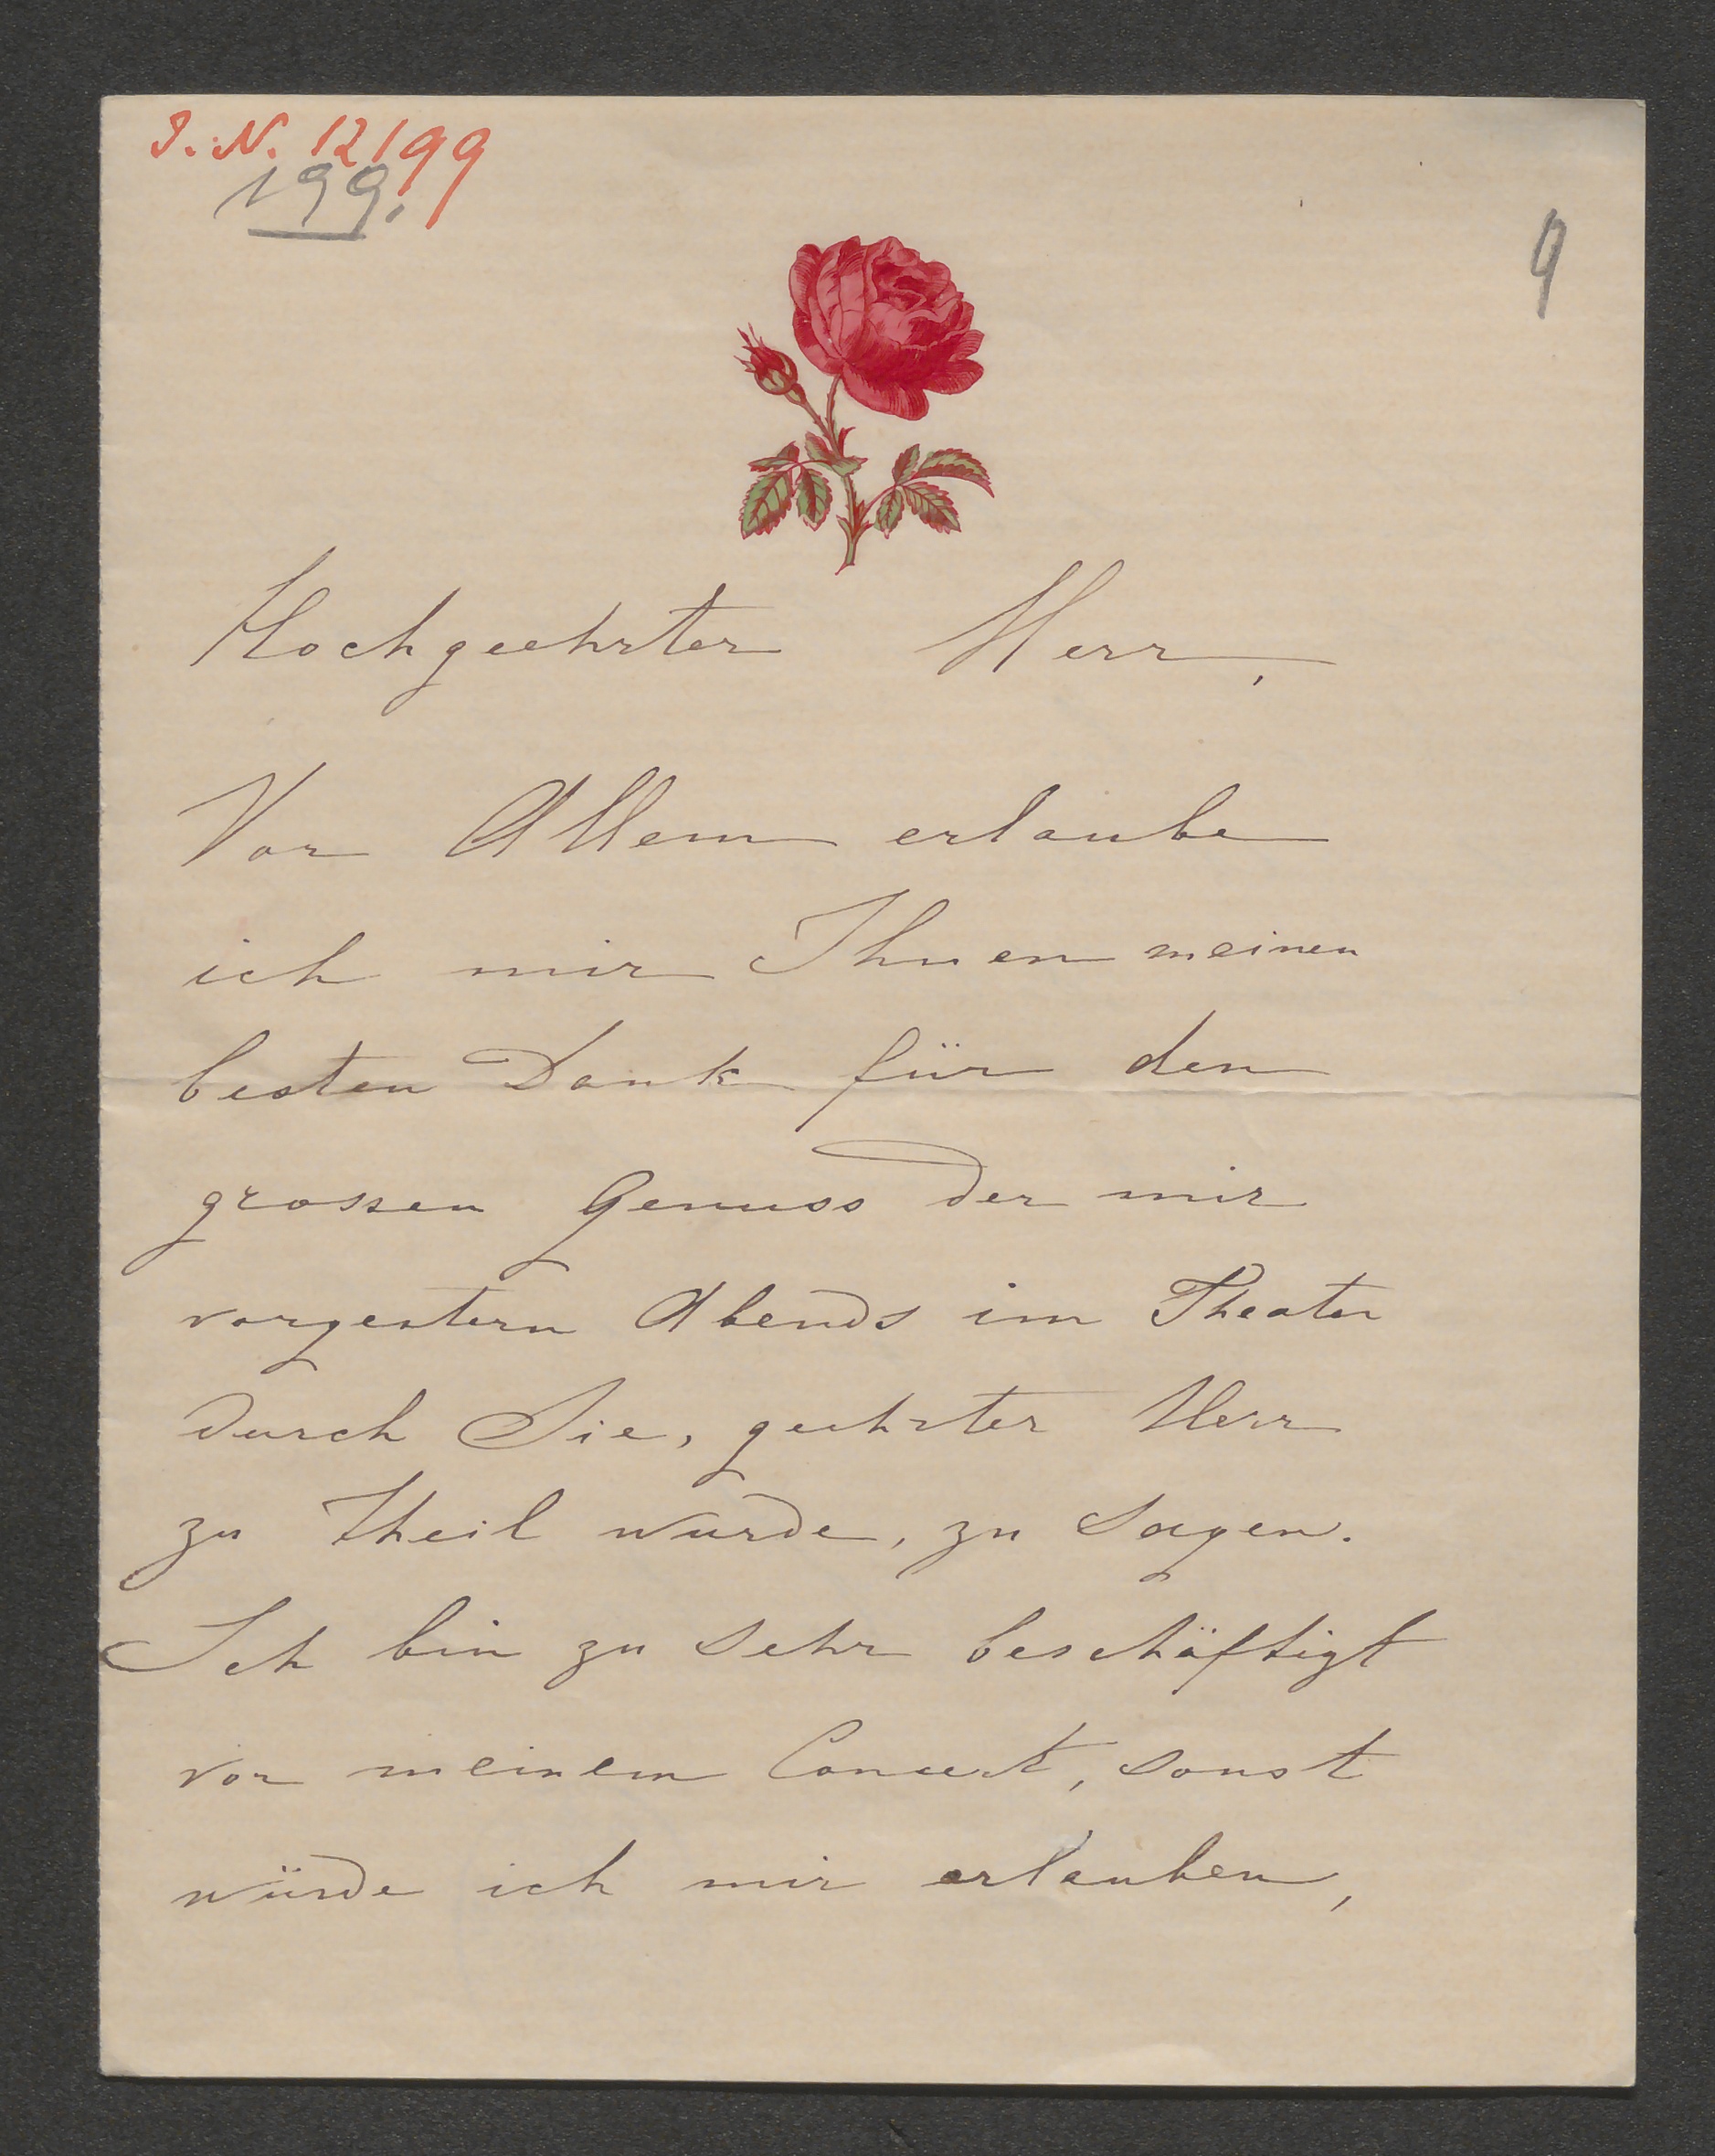 I. N. 12199
199.
9
Hochgeehrter Herr,
Vor Allem erlaube
ich mir Ihnen meinen
besten Dank für den
grossen Genuss der mir
vorgestern Abends im Theater
durch Sie, geehrter Herr
zu Theil wurde, zu sagen.
Ich bin zu sehr beschäftigt
vor meinem Concert, sonst
würde ich mir erlauben,